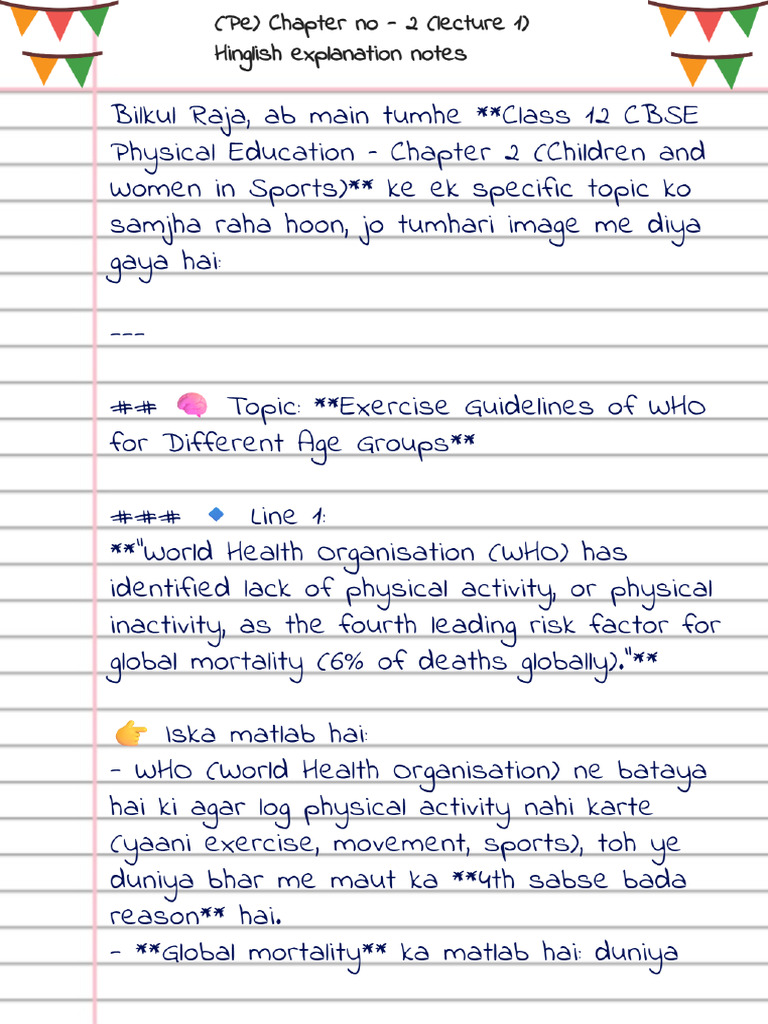 (Pe) Chapter no - 2 (lecture 1)
Hinglish explanation notes
Bilkul Raja, ab main tumhe **Class 12 CBSE
Physical Education - Chapter 2 (Children and
Women in Sports)** ke ek specific topic ko
samjha raha hoon, jo tumhari image me diya
gaya hai:
---
## 🧠 Topic: **Exercise Guidelines of WHO
for Different Age Groups**
### 🔹 Line 1:
**"World Health Organisation (WHO) has
identified lack of physical activity, or physical
inactivity, as the fourth leading risk factor for
global mortality (6% of deaths globally)."**
👉 Iska matlab hai:
- WHO (World Health Organisation) ne bataya
hai ki agar log physical activity nahi karte
(yaani exercise, movement, sports), toh ye
duniya bhar me maut ka **4th sabse bada
reason** hai.
- **Global mortality** ka matlab hai: duniya